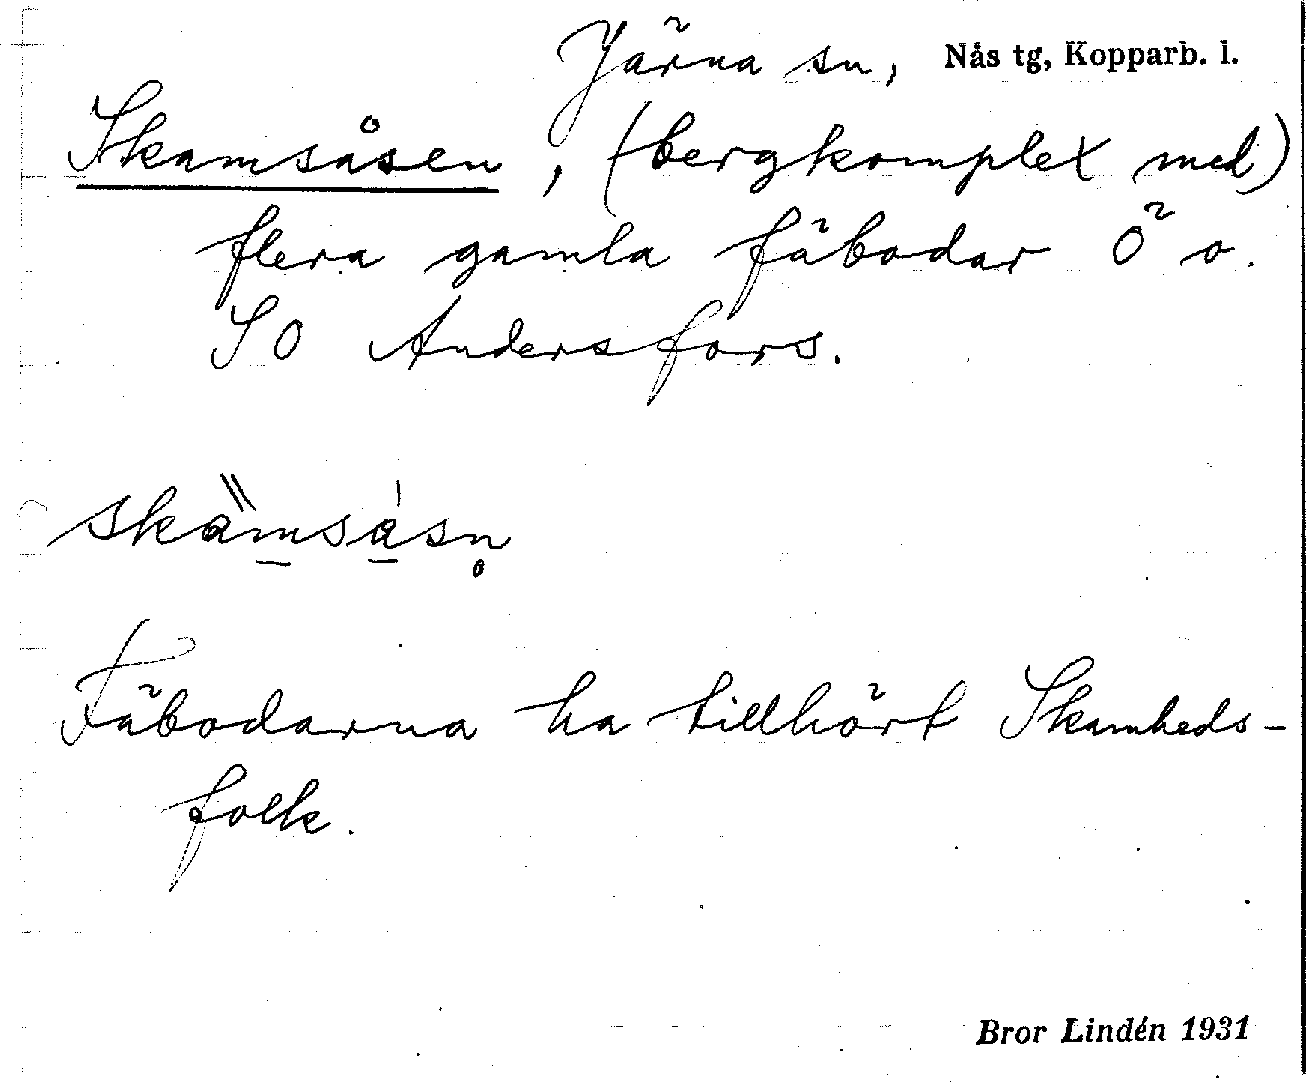 Järna sn, Nås tg, Kopparb. l.
Skamsåsen, (bergkomplex med)
flera gamla fäbodar Ö o.
SO Andersfors.
skàmsásn̥
Fäbodarna ha tillhört Skamheds-
folk.
Bror Lindén 1931